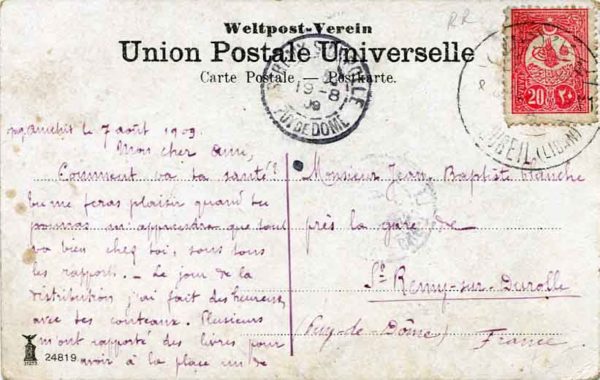 Weltpost-Verein
Union Postale Universelle
Carte Postale — Postkarte.
le 7 août 1909.
Mon cher ami,
Comment va ta santé?
tu me feras plaisir quand tu
pourras m'apprendre que tout
va bien chez toi, sous tous
les rapports. - Le jour de la
distribution j'ai fait des heureux
avec tes couteaux. Plusieurs
m'ont rapporté des livres pour
avoir à la place un de
24819
Monsieur Jean Baptiste
près la gare de
St Remy-sur-Durolle
(Puy-de-Dôme) France
19-8
09
PUY DE DOME
20 ٢٠
DJUBEIL (LIBAN)
RR